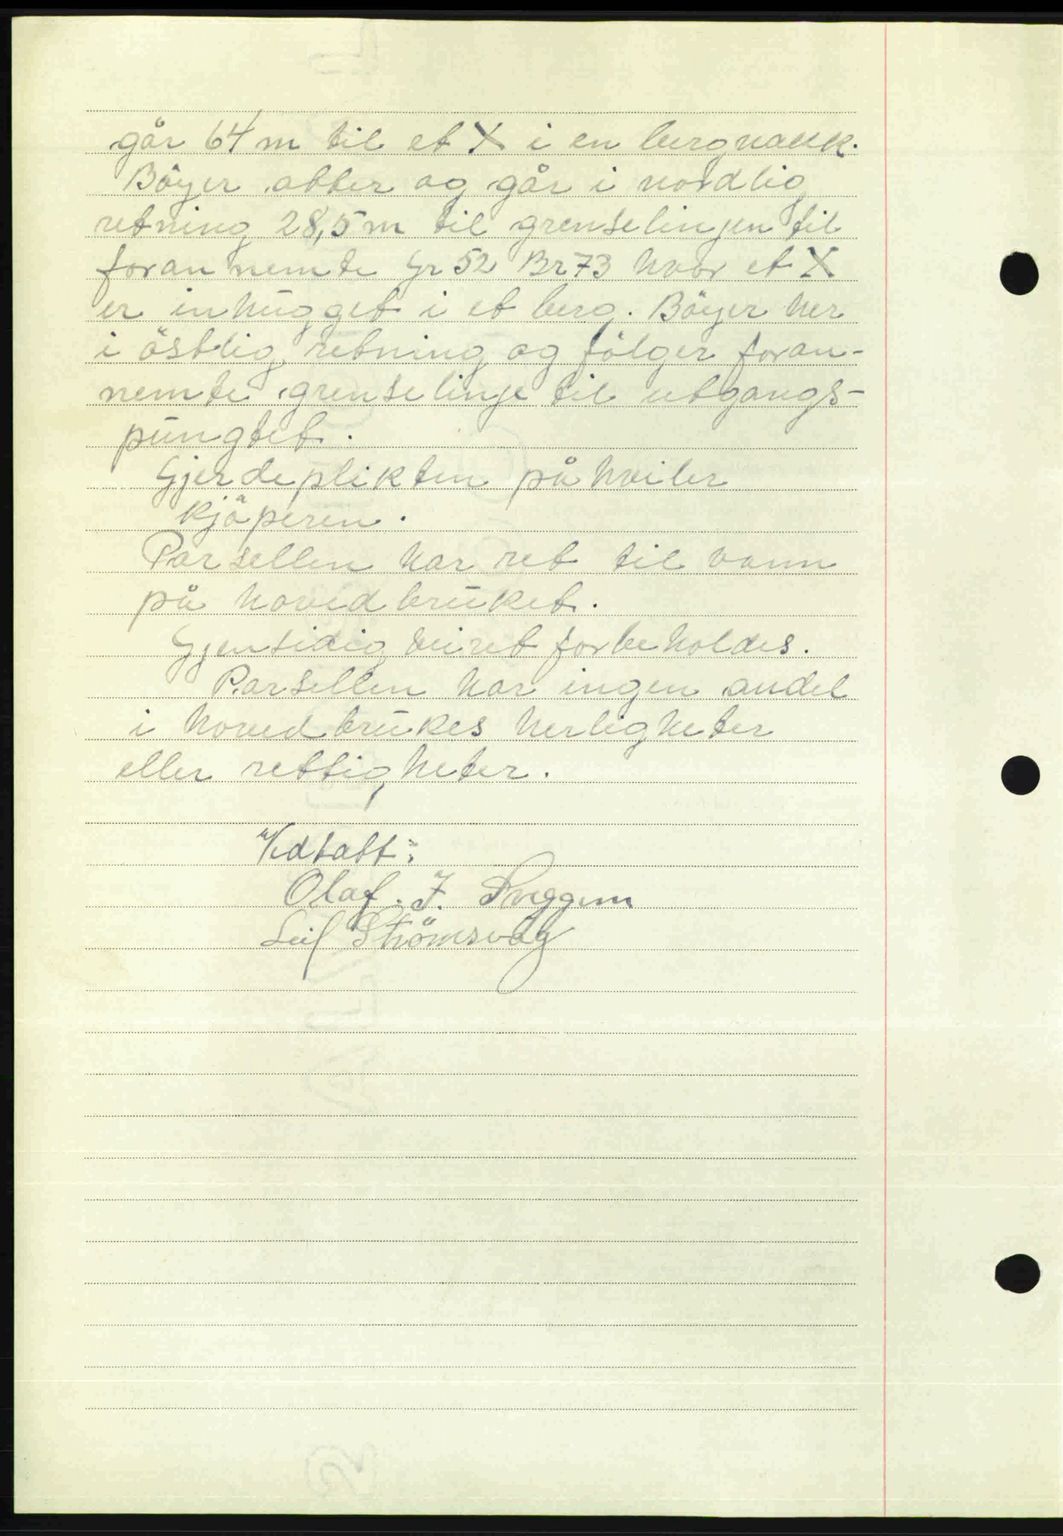 går 64 m til et X i en bergnakk.
Böyer atter og går i nordlig
retning 28,5 m til grenselinjen til
forannemte Gr 52 Br 73 hvor et X
er inhugget i et berg. Böyer her
i östlig retning og fölger foran-
nemte grenselinje til utgangs-
pungtet.
Gjerdeplikten påhviler
kjöperen.
Parsellen har ret til vann
på hovedbruket.
Gjensidig veiret forbeholdes.
Parsellen har ingen andel
i hovedbrukes herligheter
eller rettigheter.
Vedtatt:
Olaf. J.
Leif Strömsvåg